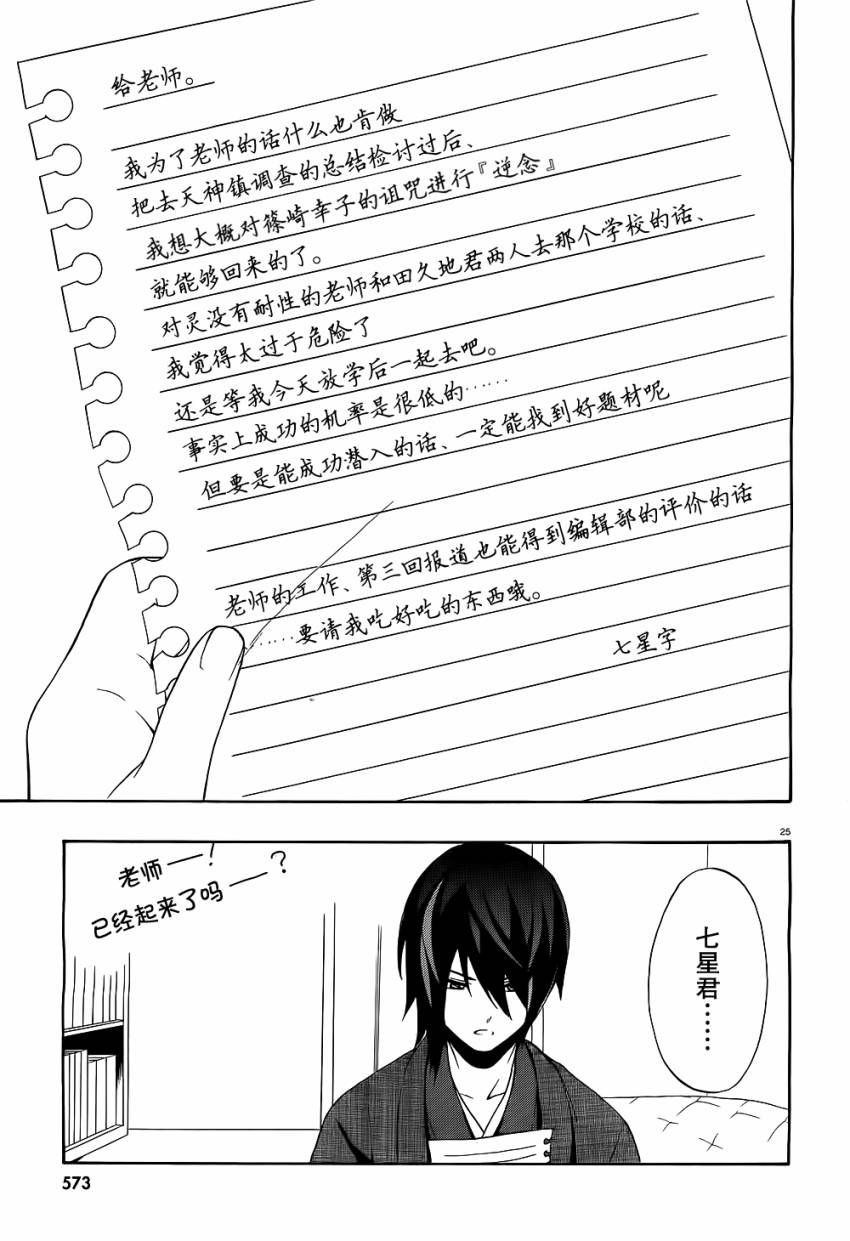 给老师。
我为了老师的话什么也肯做
把去天神镇调查的总结检讨过后、
我想大概对篠崎幸子的诅咒进行『逆念』
就能够回来的了。
对灵没有耐性的老师和田久地君两人去那个学校的话、
我觉得太过于危险了
还是等我今天放学后一起去吧。
事实上成功的机率是很低的……
但要是能成功潜入的话、一定能找到好题材呢
老师的工作、第三回报道也能得到编辑部的评价的话
……要请我吃好吃的东西哦。
七星字
25
七星君……
老师——!
已经起来了吗——?
573